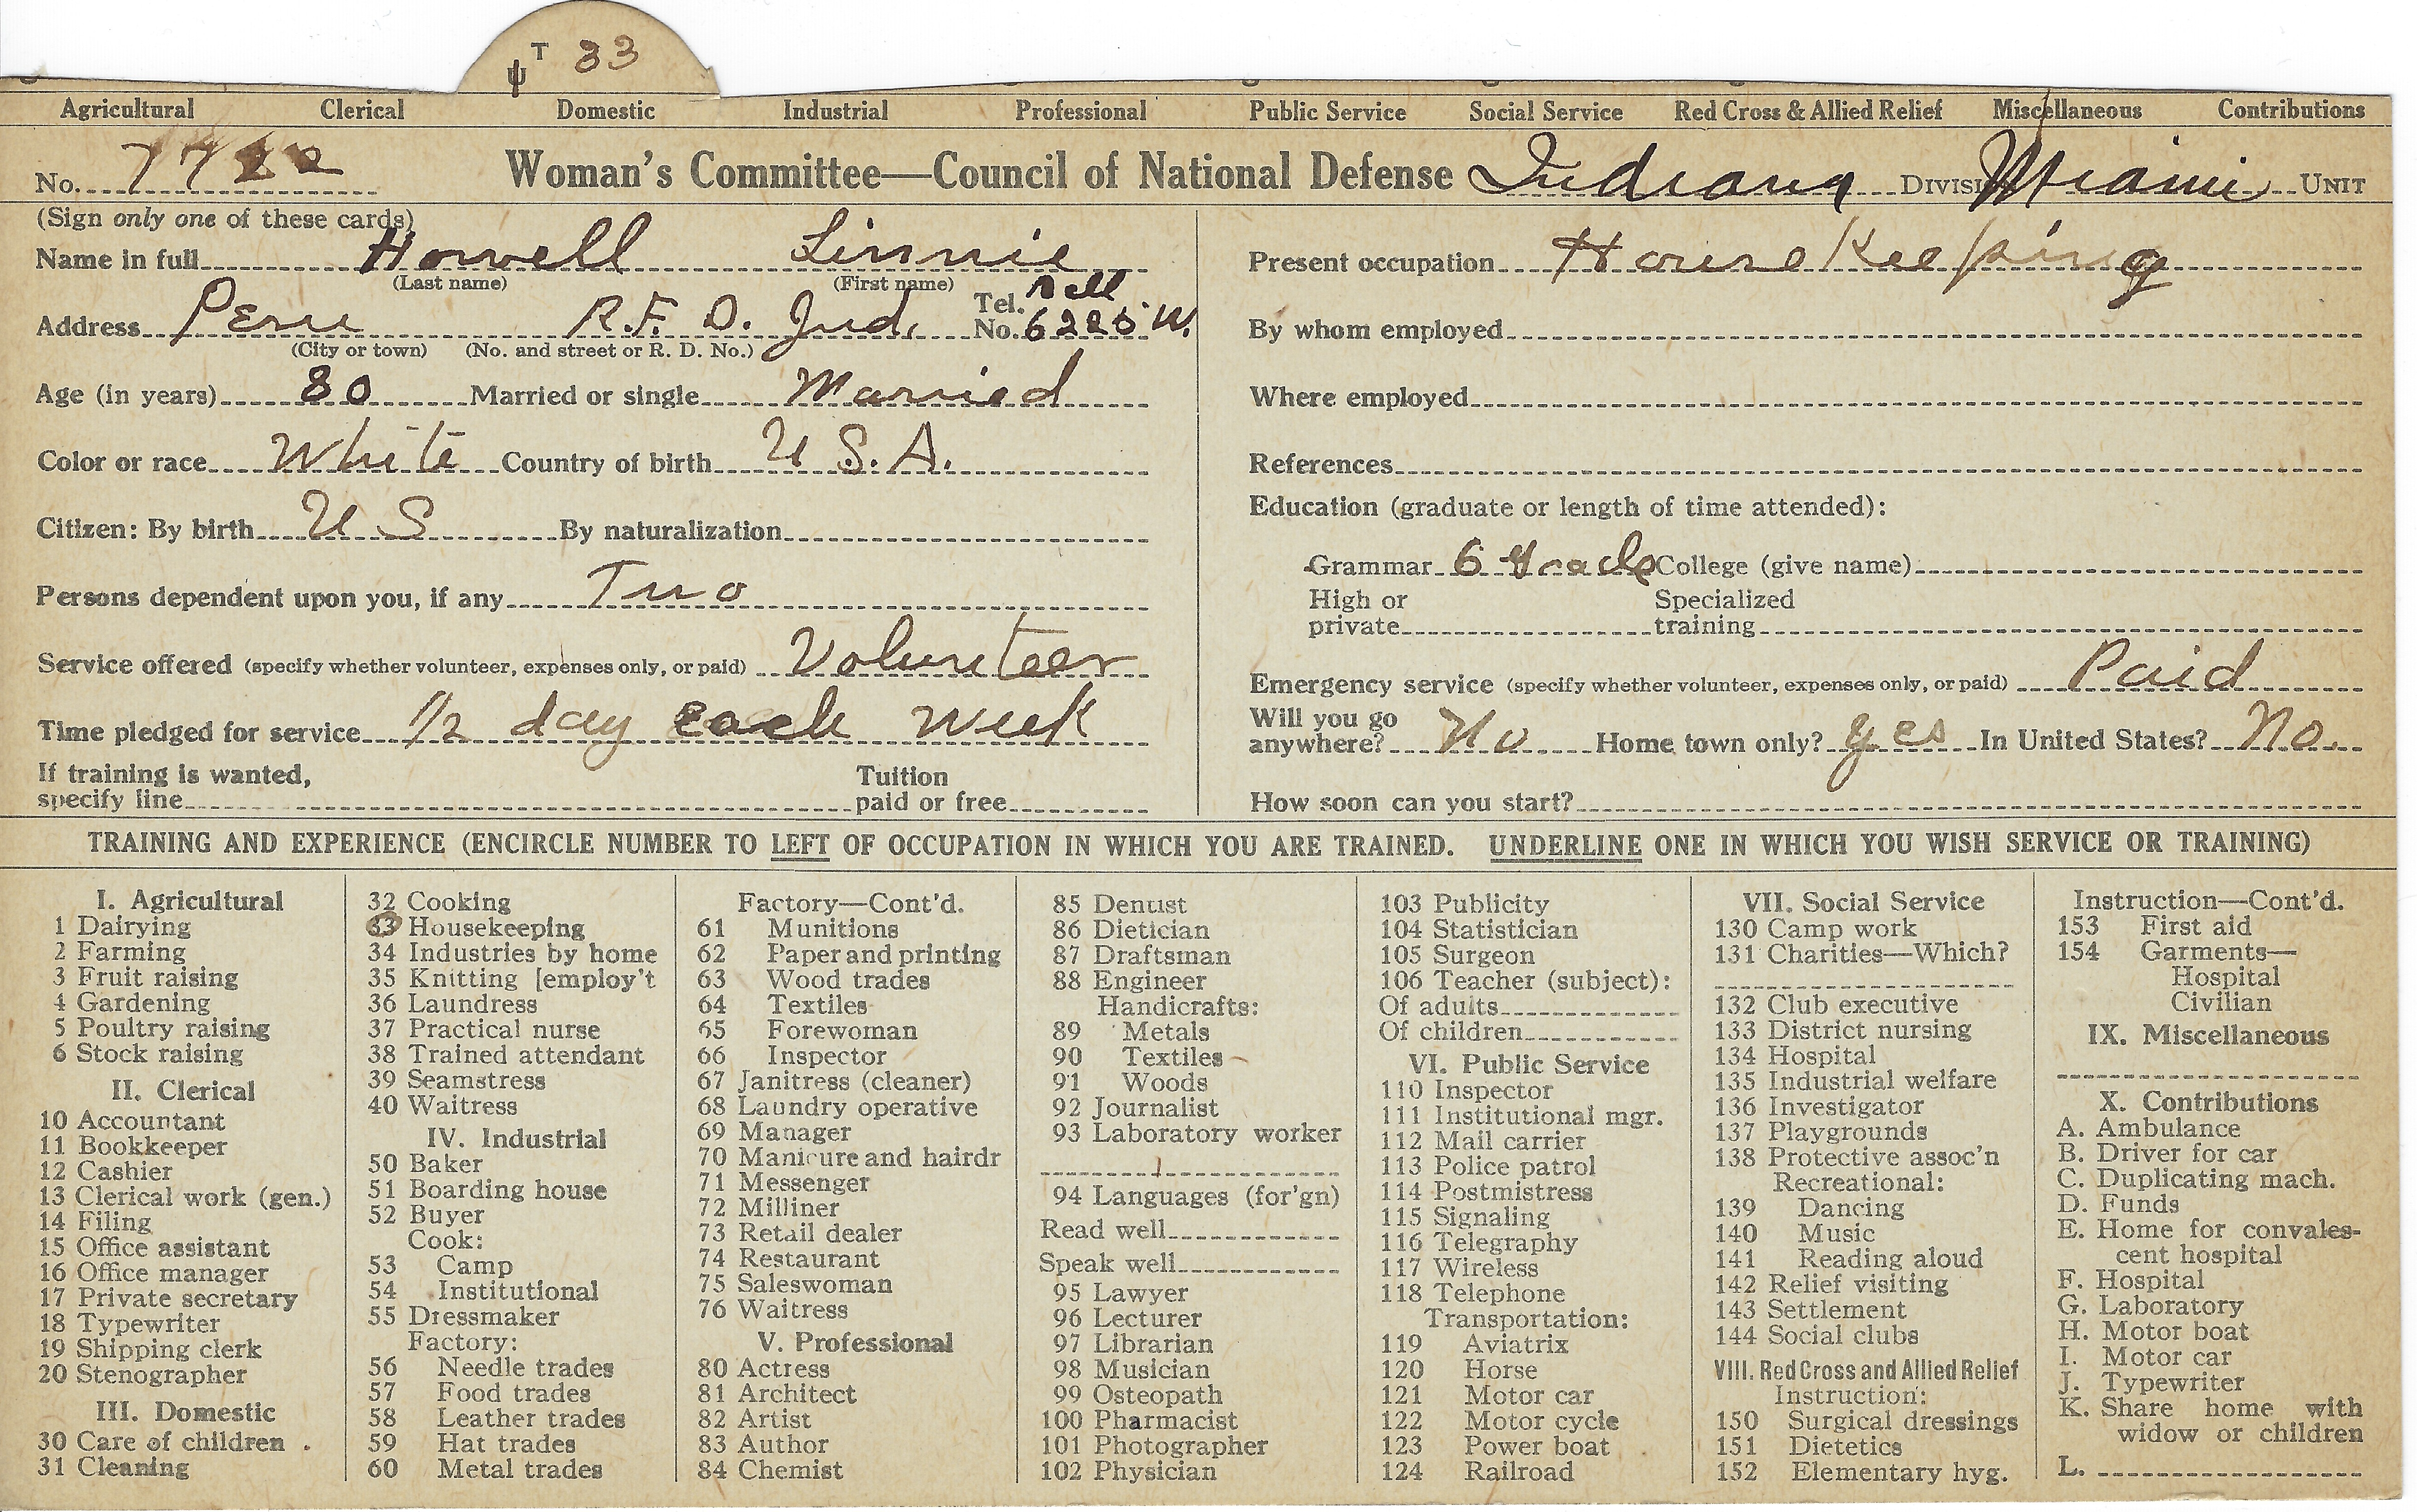 T 33
Agricultural Clerical Domestic Industrial Professional Public Service Social Service Red Cross & Allied Relief Miscellaneous Contributions
No. Woman's Committee—Council of National Defense Indiana DIVISION Miami UNIT
(Sign only one of these cards)
Name in full Howell Linnie
(Last name) (First name)
Address Peru R.F.D. Ind. Tel. No. Bell W.
(City or town) (No. and street or R. D. No.)
Age (in years) 30 Married or single Married
Color or race White Country of birth U S.A.
Citizen: By birth U S By naturalization
Persons dependent upon you, if any Two
Service offered (specify whether volunteer, expenses only, or paid) Volunteer
Time pledged for service 1/2 day each week
If training is wanted,
specify line Tuition paid or free
Present occupation House Keeping
By whom employed
Where employed
References
Education (graduate or length of time attended):
Grammar 6 Grade College (give name)
High or private Specialized training
Emergency service (specify whether volunteer, expenses only, or paid) Paid
Will you go anywhere? No Home town only? yes In United States? No.
How soon can you start?
TRAINING AND EXPERIENCE (ENCIRCLE NUMBER TO LEFT OF OCCUPATION IN WHICH YOU ARE TRAINED. UNDERLINE ONE IN WHICH YOU WISH SERVICE OR TRAINING)
I. Agricultural
1 Dairying
2 Farming
3 Fruit raising
4 Gardening
5 Poultry raising
6 Stock raising
II. Clerical
10 Accountant
11 Bookkeeper
12 Cashier
13 Clerical work (gen.)
14 Filing
15 Office assistant
16 Office manager
17 Private secretary
18 Typewriter
19 Shipping clerk
20 Stenographer
III. Domestic
30 Care of children
31 Cleaning
32 Cooking
33 Housekeeping
34 Industries by home
35 Knitting [employ't
36 Laundress
37 Practical nurse
38 Trained attendant
39 Seamstress
40 Waitress
IV. Industrial
50 Baker
51 Boarding house
52 Buyer
Cook:
53 Camp
54 Institutional
55 Dressmaker
Factory:
56 Needle trades
57 Food trades
58 Leather trades
59 Hat trades
60 Metal trades
Factory—Cont'd.
61 Munitions
62 Paper and printing
63 Wood trades
64 Textiles
65 Forewoman
66 Inspector
67 Janitress (cleaner)
68 Laundry operative
69 Manager
70 Manicure and hairdr
71 Messenger
72 Milliner
73 Retail dealer
74 Restaurant
75 Saleswoman
76 Waitress
V. Professional
80 Actress
81 Architect
82 Artist
83 Author
84 Chemist
85 Dentist
86 Dietician
87 Draftsman
88 Engineer
Handicrafts:
89 Metals
90 Textiles
91 Woods
92 Journalist
93 Laboratory worker
94 Languages (for'gn)
Read well
Speak well
95 Lawyer
96 Lecturer
97 Librarian
98 Musician
99 Osteopath
100 Pharmacist
101 Photographer
102 Physician
103 Publicity
104 Statistician
105 Surgeon
106 Teacher (subject):
Of adults
Of children
VI. Public Service
110 Inspector
111 Institutional mgr.
112 Mail carrier
113 Police patrol
114 Postmistress
115 Signaling
116 Telegraphy
117 Wireless
118 Telephone
Transportation:
119 Aviatrix
120 Horse
121 Motor car
122 Motor cycle
123 Power boat
124 Railroad
VII. Social Service
130 Camp work
131 Charities—Which?
132 Club executive
133 District nursing
134 Hospital
135 Industrial welfare
136 Investigator
137 Playgrounds
138 Protective assoc'n
Recreational:
139 Dancing
140 Music
141 Reading aloud
142 Relief visiting
143 Settlement
144 Social clubs
VIII. Red Cross and Allied Relief
Instruction:
150 Surgical dressings
151 Dietetics
152 Elementary hyg.
Instruction—Cont'd.
153 First aid
154 Garments—
Hospital
Civilian
IX. Miscellaneous
X. Contributions
A. Ambulance
B. Driver for car
C. Duplicating mach.
D. Funds
E. Home for convales-
cent hospital
F. Hospital
G. Laboratory
H. Motor boat
I. Motor car
J. Typewriter
K. Share home with
widow or children
L.